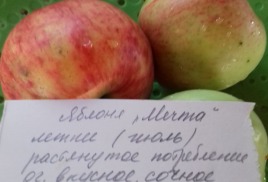 Яблоня „Мечта"
летнее (июль)
растянутое потребление
ос. вкусное, сочное